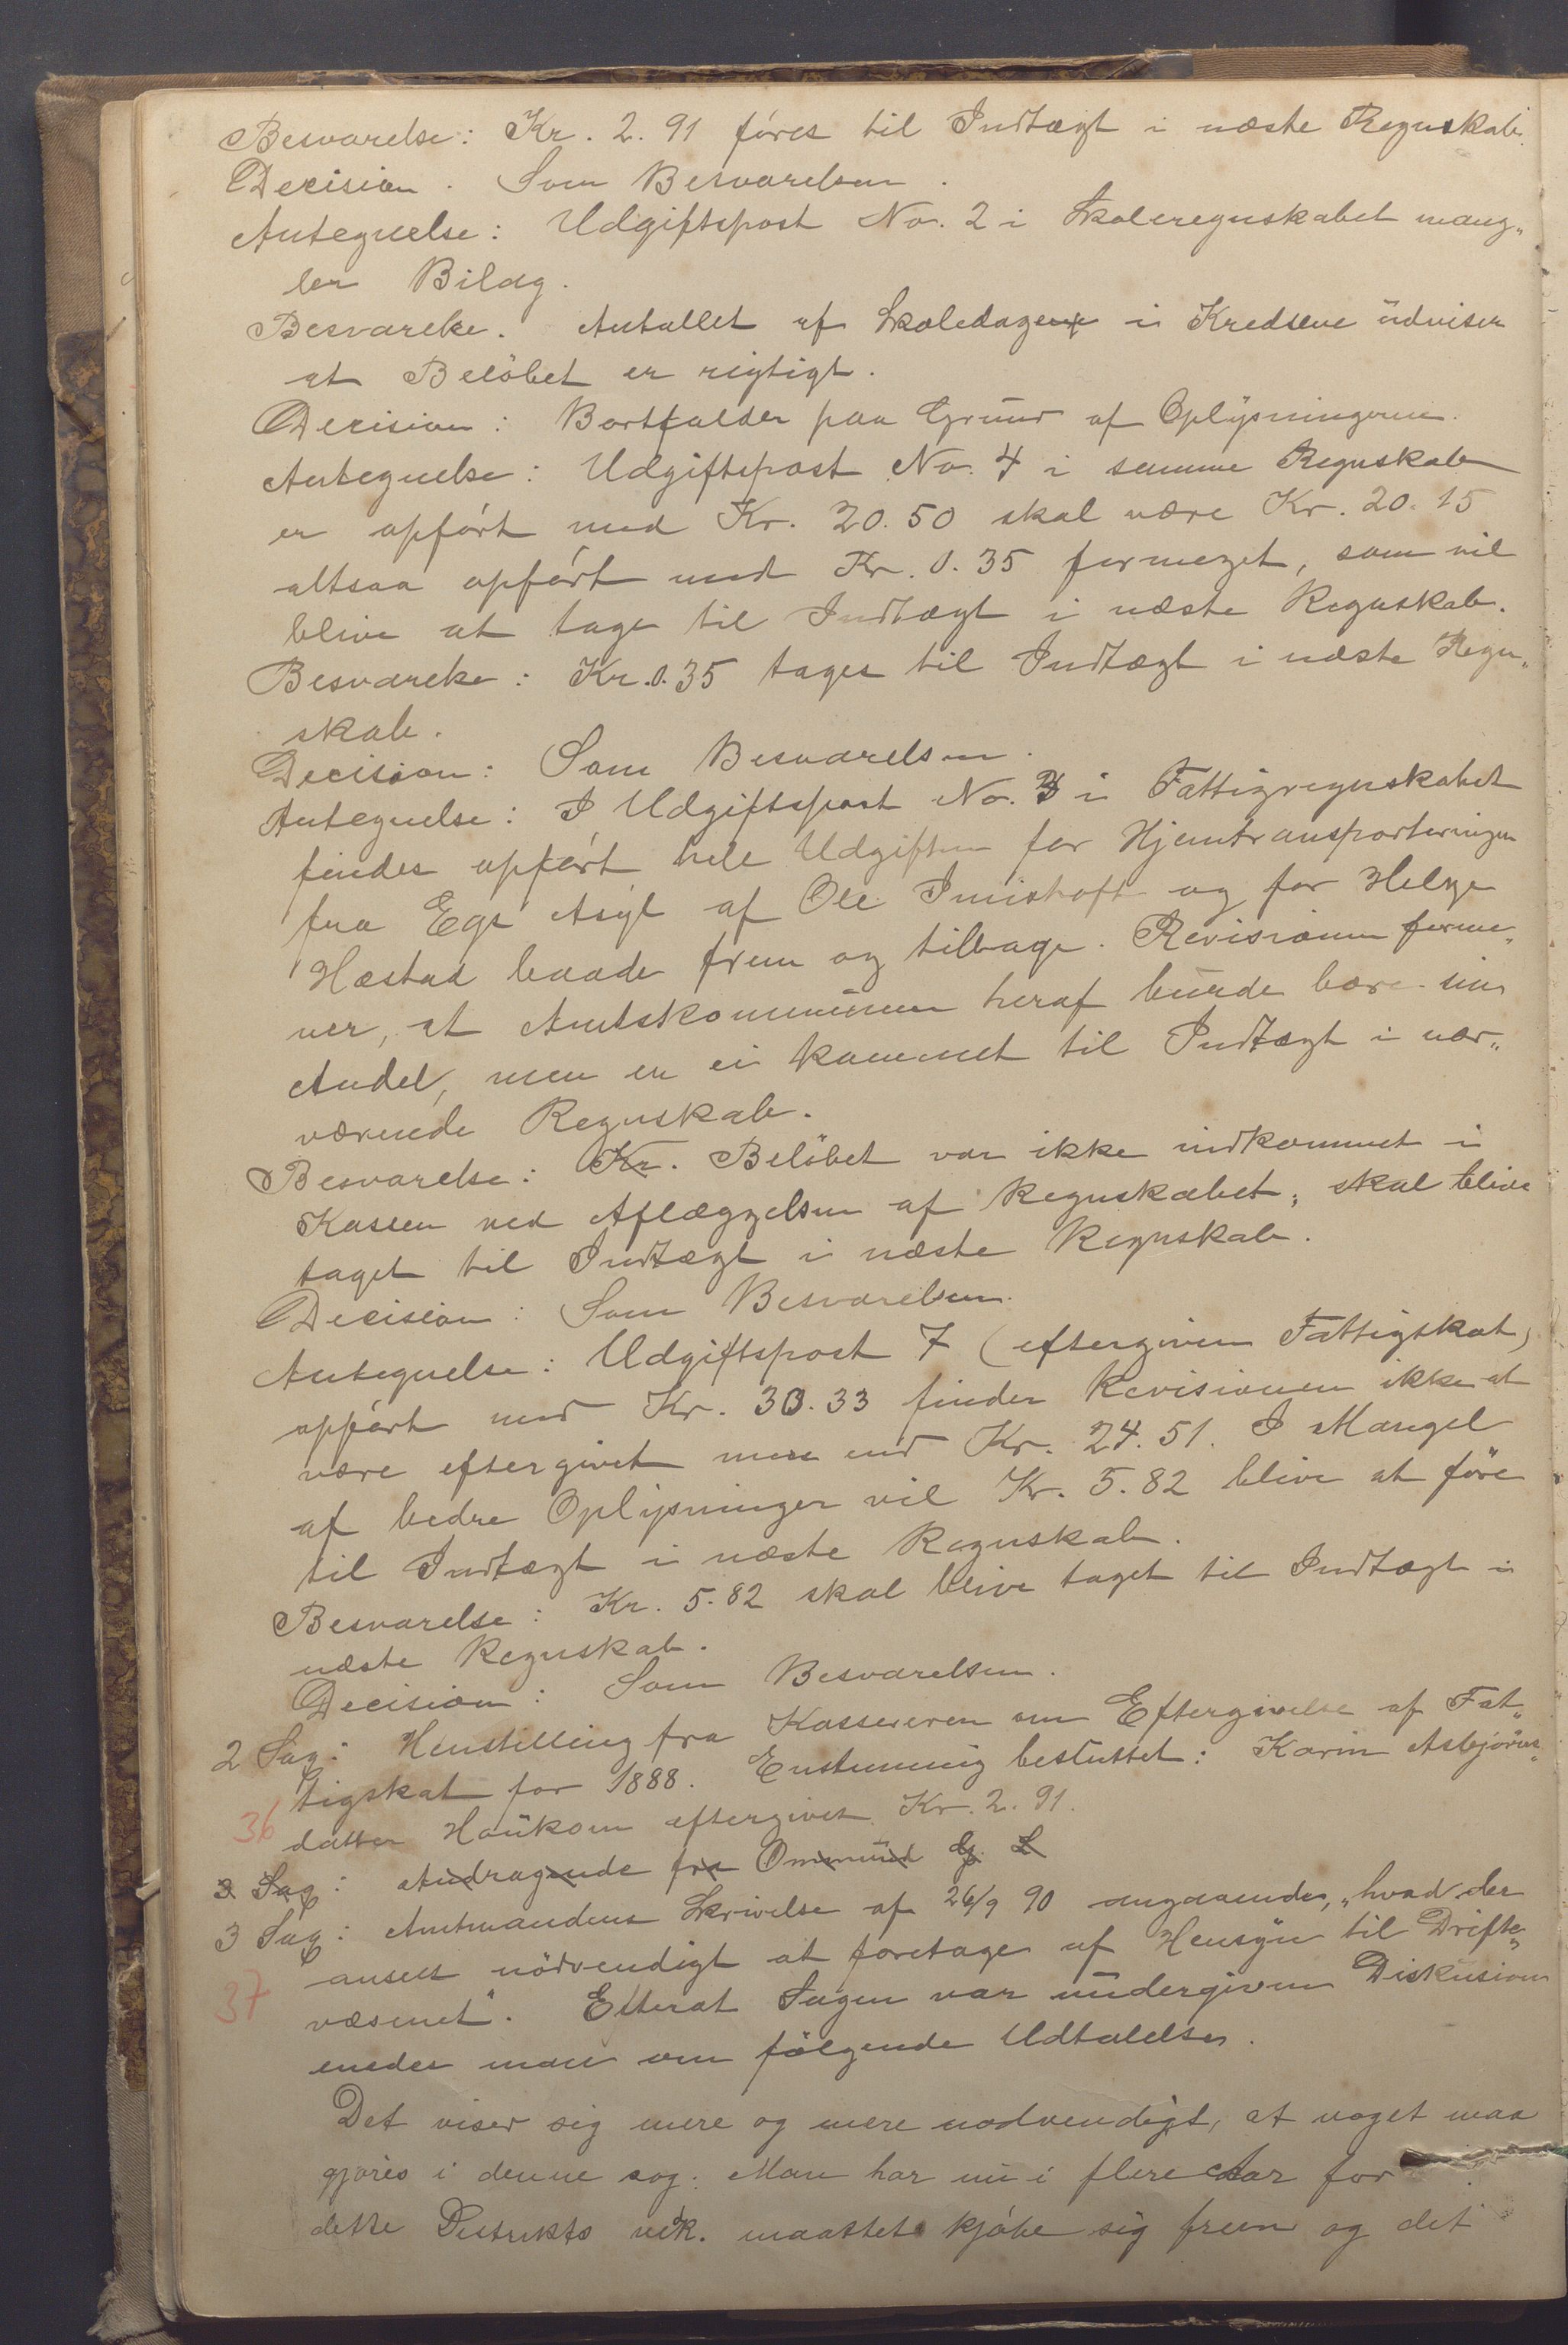 Besvarelse: Kr. 2.91 föres til Indtægt i næste Regnskab.
Decision. Som Besvarelsen.
Antegnelse: Udgiftspost No. 2 i Skoleregnskabet mang„
ler Bilag.
Besvarelse. Antallet af Skoledage i Kredsene udviser
at Belöbet er rigtigt.
Decision: Bortfalder paa Grund af Oplysningerne.
Antegnelse: Udgiftspost No. 4 i samme Regnskab
er opfört med Kr. 20.50 skal være Kr. 20.15
altsaa opfört med Kr. 0.35 formeget, som vil
blive at tage til Indtægt i næste Regnskab.
Besvarelse: Kr. 0.35 tages til Indtægt i næste Regn„
skab.
Decision: Som Besvarelsen.
Antegnelse: I Udgiftspost No. 3 i Fattigregnskabet
findes opfört hele Udgiften for Hjemtransporteringen
fra Egs Asyl af Ole og for Helge
Hæstad baade frem og tilbage. Revisionen forme„
ner, at Amtskommunen heraf burde bære sin
Andel, men er ei kommet til Indtægt i nær„
værende Regnskab.
Besvarelse: Kr. Belöbet var ikke indkommet i
Kassen ved Aflæggelsen af Regnskabet, skal blive
taget til Indtægt i næste Regnskab.
Decision: Som Besvarelsen.
Antegnelse: Udgiftspost 7 (eftergiven Fattigskat)
opfört med Kr. 30.33 finder Revisionen ikke at
være eftergivet mere end Kr. 24.51. I Mangel
af bedre Oplysninger vil Kr. 5.82 blive at före
til Indtægt i næste Regnskab.
Besvarelse: Kr. 5.82 skal blive taget til Indtægt i
næste Regnskab.
Decision: Som Besvarelsen.
2 Sag: Henstilling fra Kassereren om Eftergivelse af Fat„
tigskat for 1888. Enstemmig besluttet: Karin Asbjörns„
36 datter Haukom eftergivet Kr. 2.91.
3 Sag: Andragende fra Ommund G. L
3 Sag: Amtmandens Skrivelse af 26/9 90 angaaende, „hvad der
ansees nödvendigt at foretage af Hensyn til Drifte„
37 væsenet". Efterat Sagen var undergiven Diskusion
enedes man om fölgende Udtalelse.
Det viser sig mere og mere nødvendigt, at noget maa
gjøres i denne sag. Man har nu i flere Aar for
dette Distrikts vedk. maattet kjøbe sig frem og det